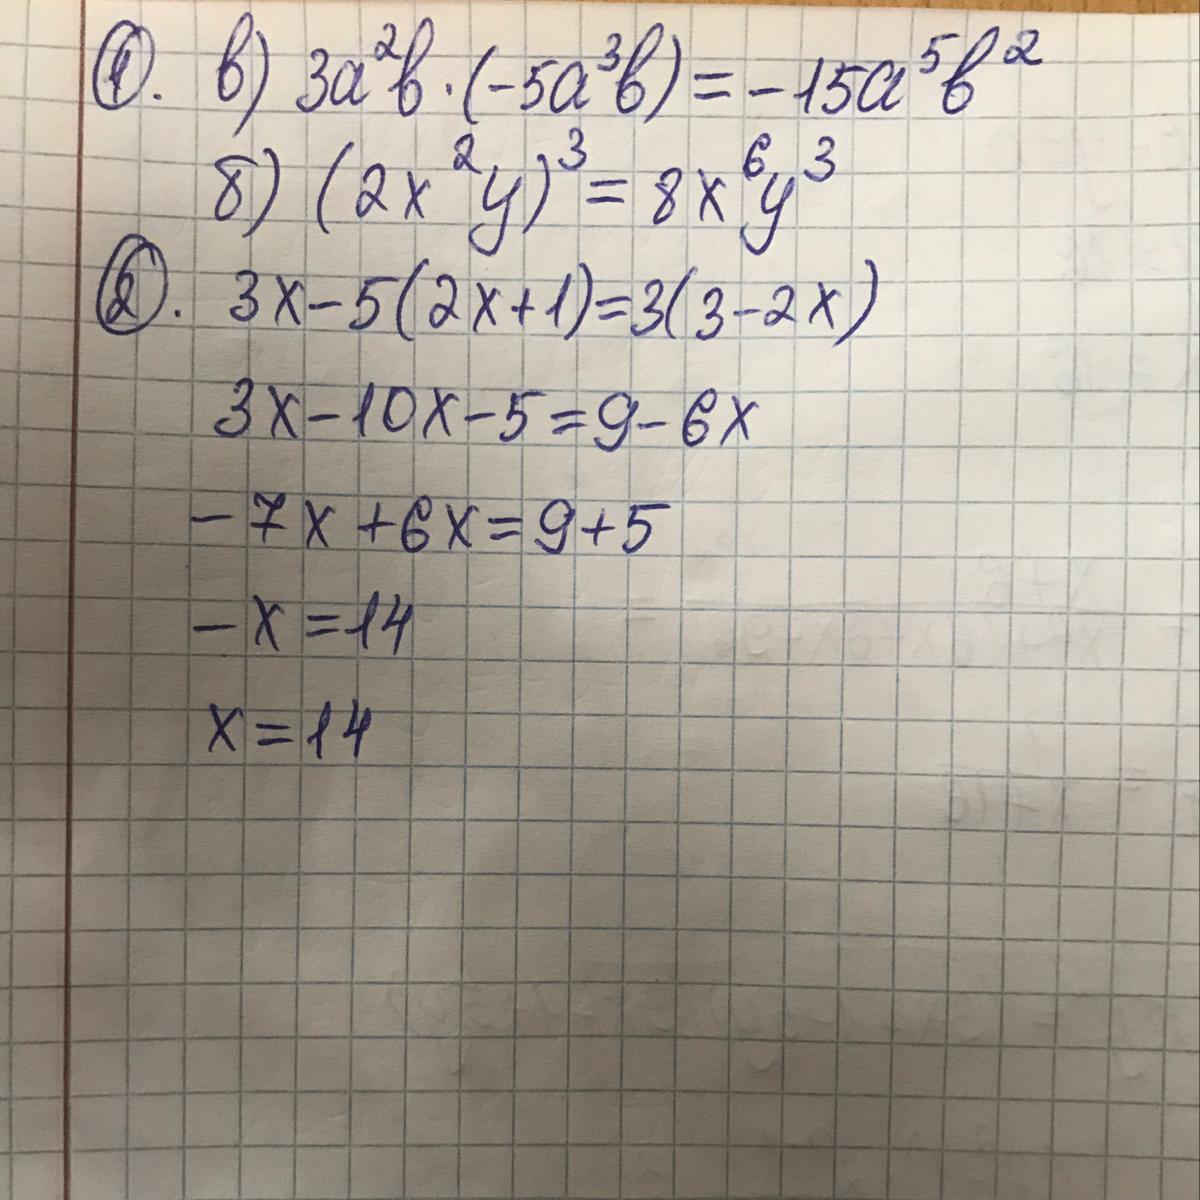 1. в) 3a²b·(-5a³b)=-15a⁵b²
б) (2x²y)³=8x⁶y³
2. 3x-5(2x+1)=3(3-2x)
3x-10x-5=9-6x
-7x+6x=9+5
-x=14
x=14